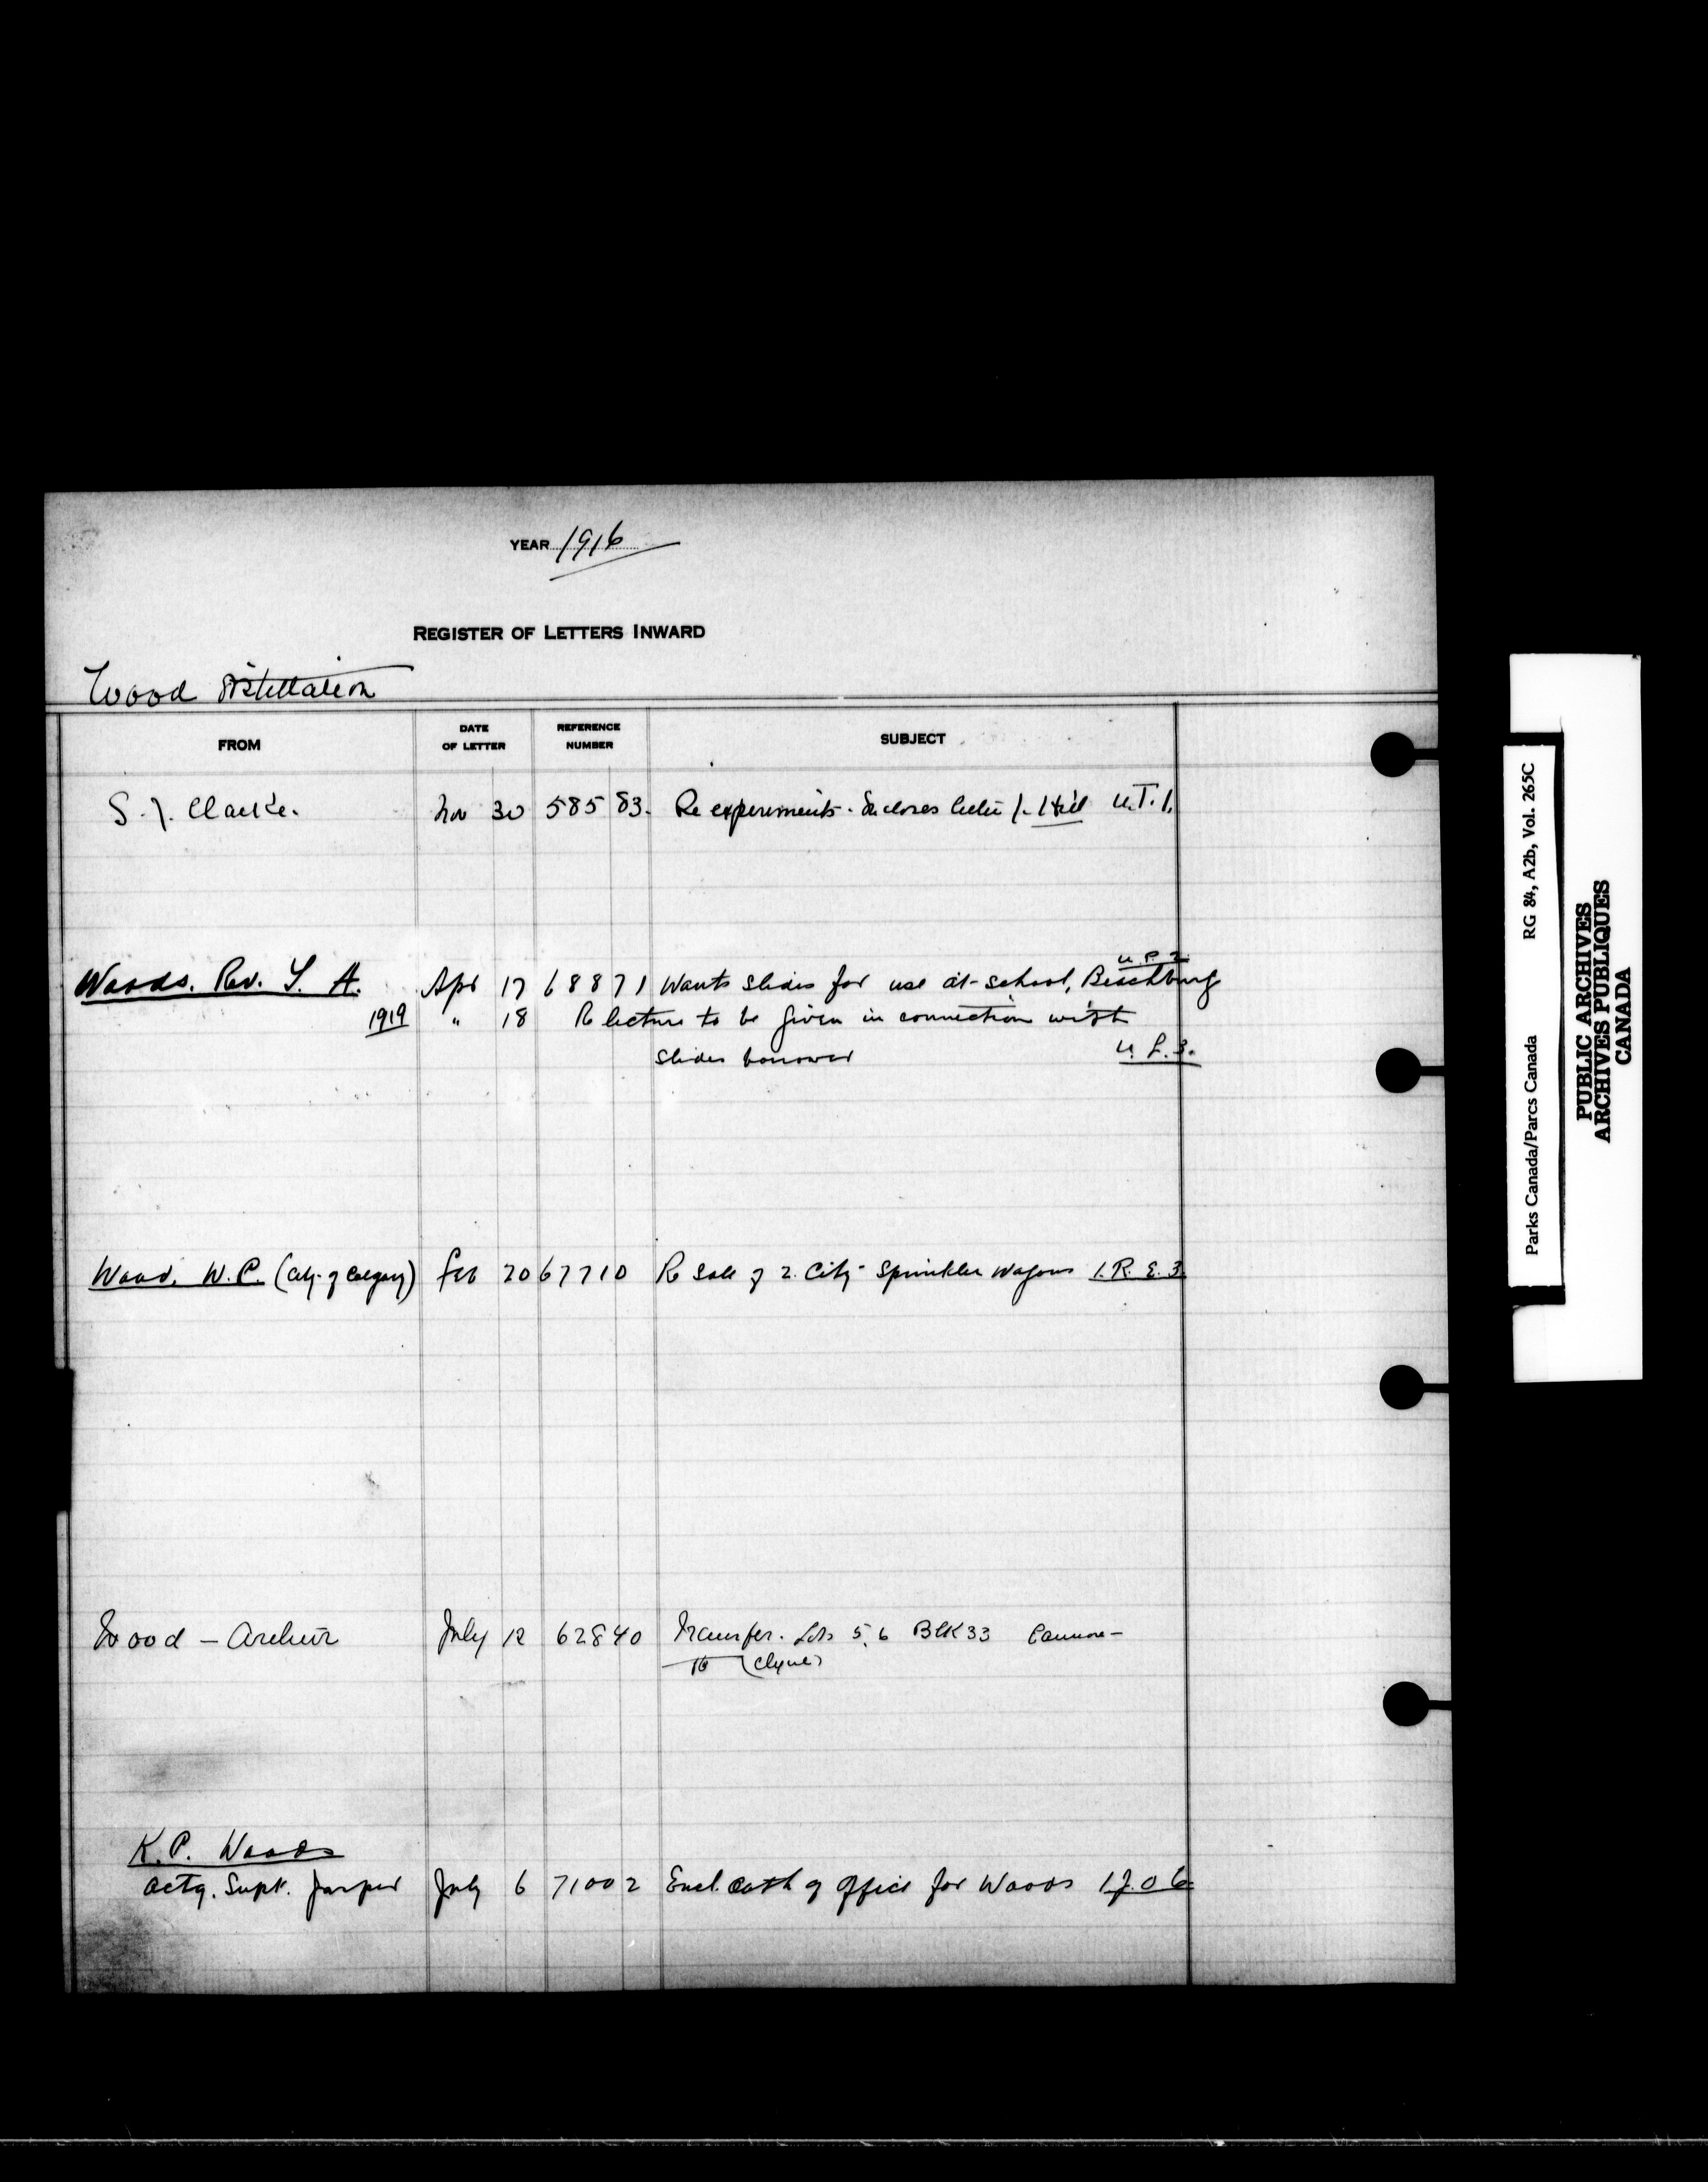 YEAR 1916
REGISTER OF LETTERS INWARD
Wood Distillation
FROM
DATE OF LETTER
REFERENCE NUMBER
SUBJECT
S. J. Clarke. Nov 30 58583. Re experiments. Encloses letter f. Hill U.T.1.
U.P.2
Woods. Rev. Y. A. Apr 17 68871 Wants slides for use at school, Beachburg
1919 " 18 Re lecture to be given in connection with
slides borrowed U.L.3.
Wood, W.C. (City of Calgary) Feb 20 67710 Re Sale of 2 City Sprinkler Wagons I.R.E.3.
Wood - Arthur July 12 62840 Transfer. Lots 5, 6 BLK 33 Canmore -
to (Clyne)
K.P. Woods
Actg. Supt. Jasper July 6 71002 Encl. oath of office for Woods 1J.06.
Parks Canada/Parcs Canada RG 84, A2b, Vol. 265C
PUBLIC ARCHIVES
ARCHIVES PUBLIQUES
CANADA